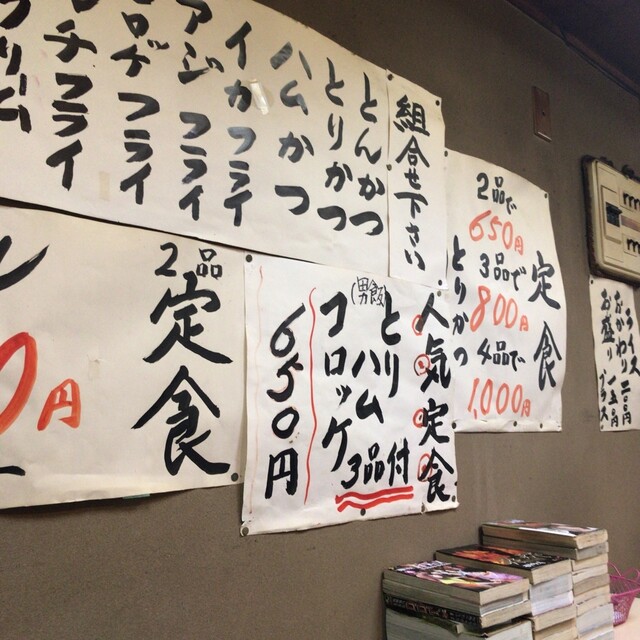 組合せ下さい
とんかつ
とりかつ
ハムかつ
イカフライ
アジフライ
コロゲフライ
チフライ
クリーム
定食
2品で
650円
3品で
800円
4品で
1,000円
とりかつ
2品
定食
0円
人気定食
(男飯)
とり
ハム
コロッケ
3品付
650円